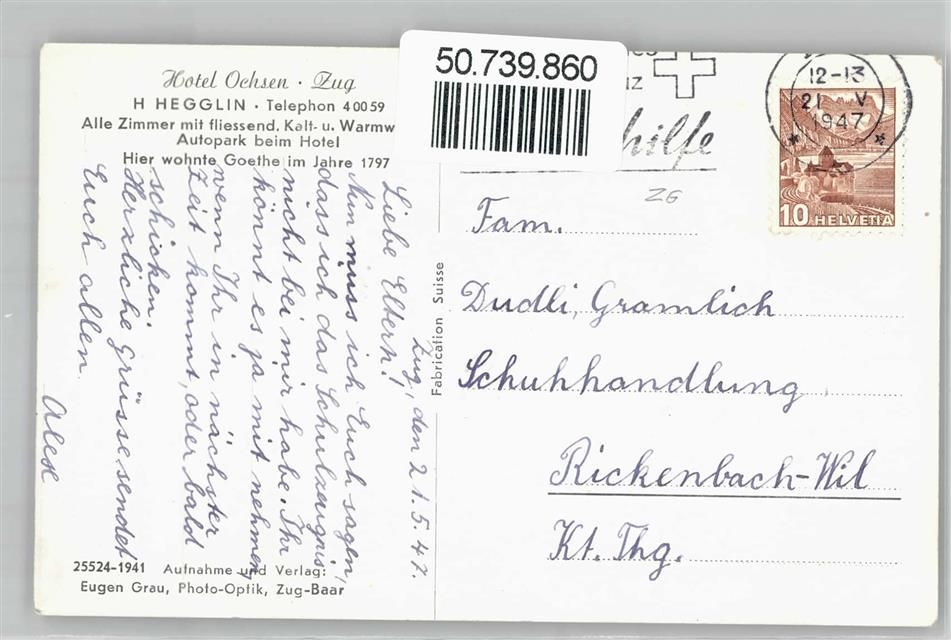 Hotel Ochsen · Zug
H HEGGLIN · Telephon 40059
Alle Zimmer mit fliessend. Kalt- u. Warmw
Autopark beim Hotel
Hier wohnte Goethe im Jahre 1797
Zug, den 21.5.47.
Liebe Eltern!
Nun muss ich Euch sagen,
dass ich das Schulzeugnis
nicht bei mir habe. Ihr
könnt es ja mit nehmen,
wenn Ihr in nächster
Zeit kommt, oder bald
schicken.
Herzliche Grüsse sendet
Euch allen
Alex
25524-1941 Aufnahme und Verlag:
Eugen Grau, Photo-Optik, Zug-Baar
Fabrication Suisse
50.739.860
hilfe
12-13
21 V
1947
10 HELVETIA
ZG
Fam.
Dudli, Gramlich
Schuhhandlung
Rickenbach-Wil
Kt. Thg.